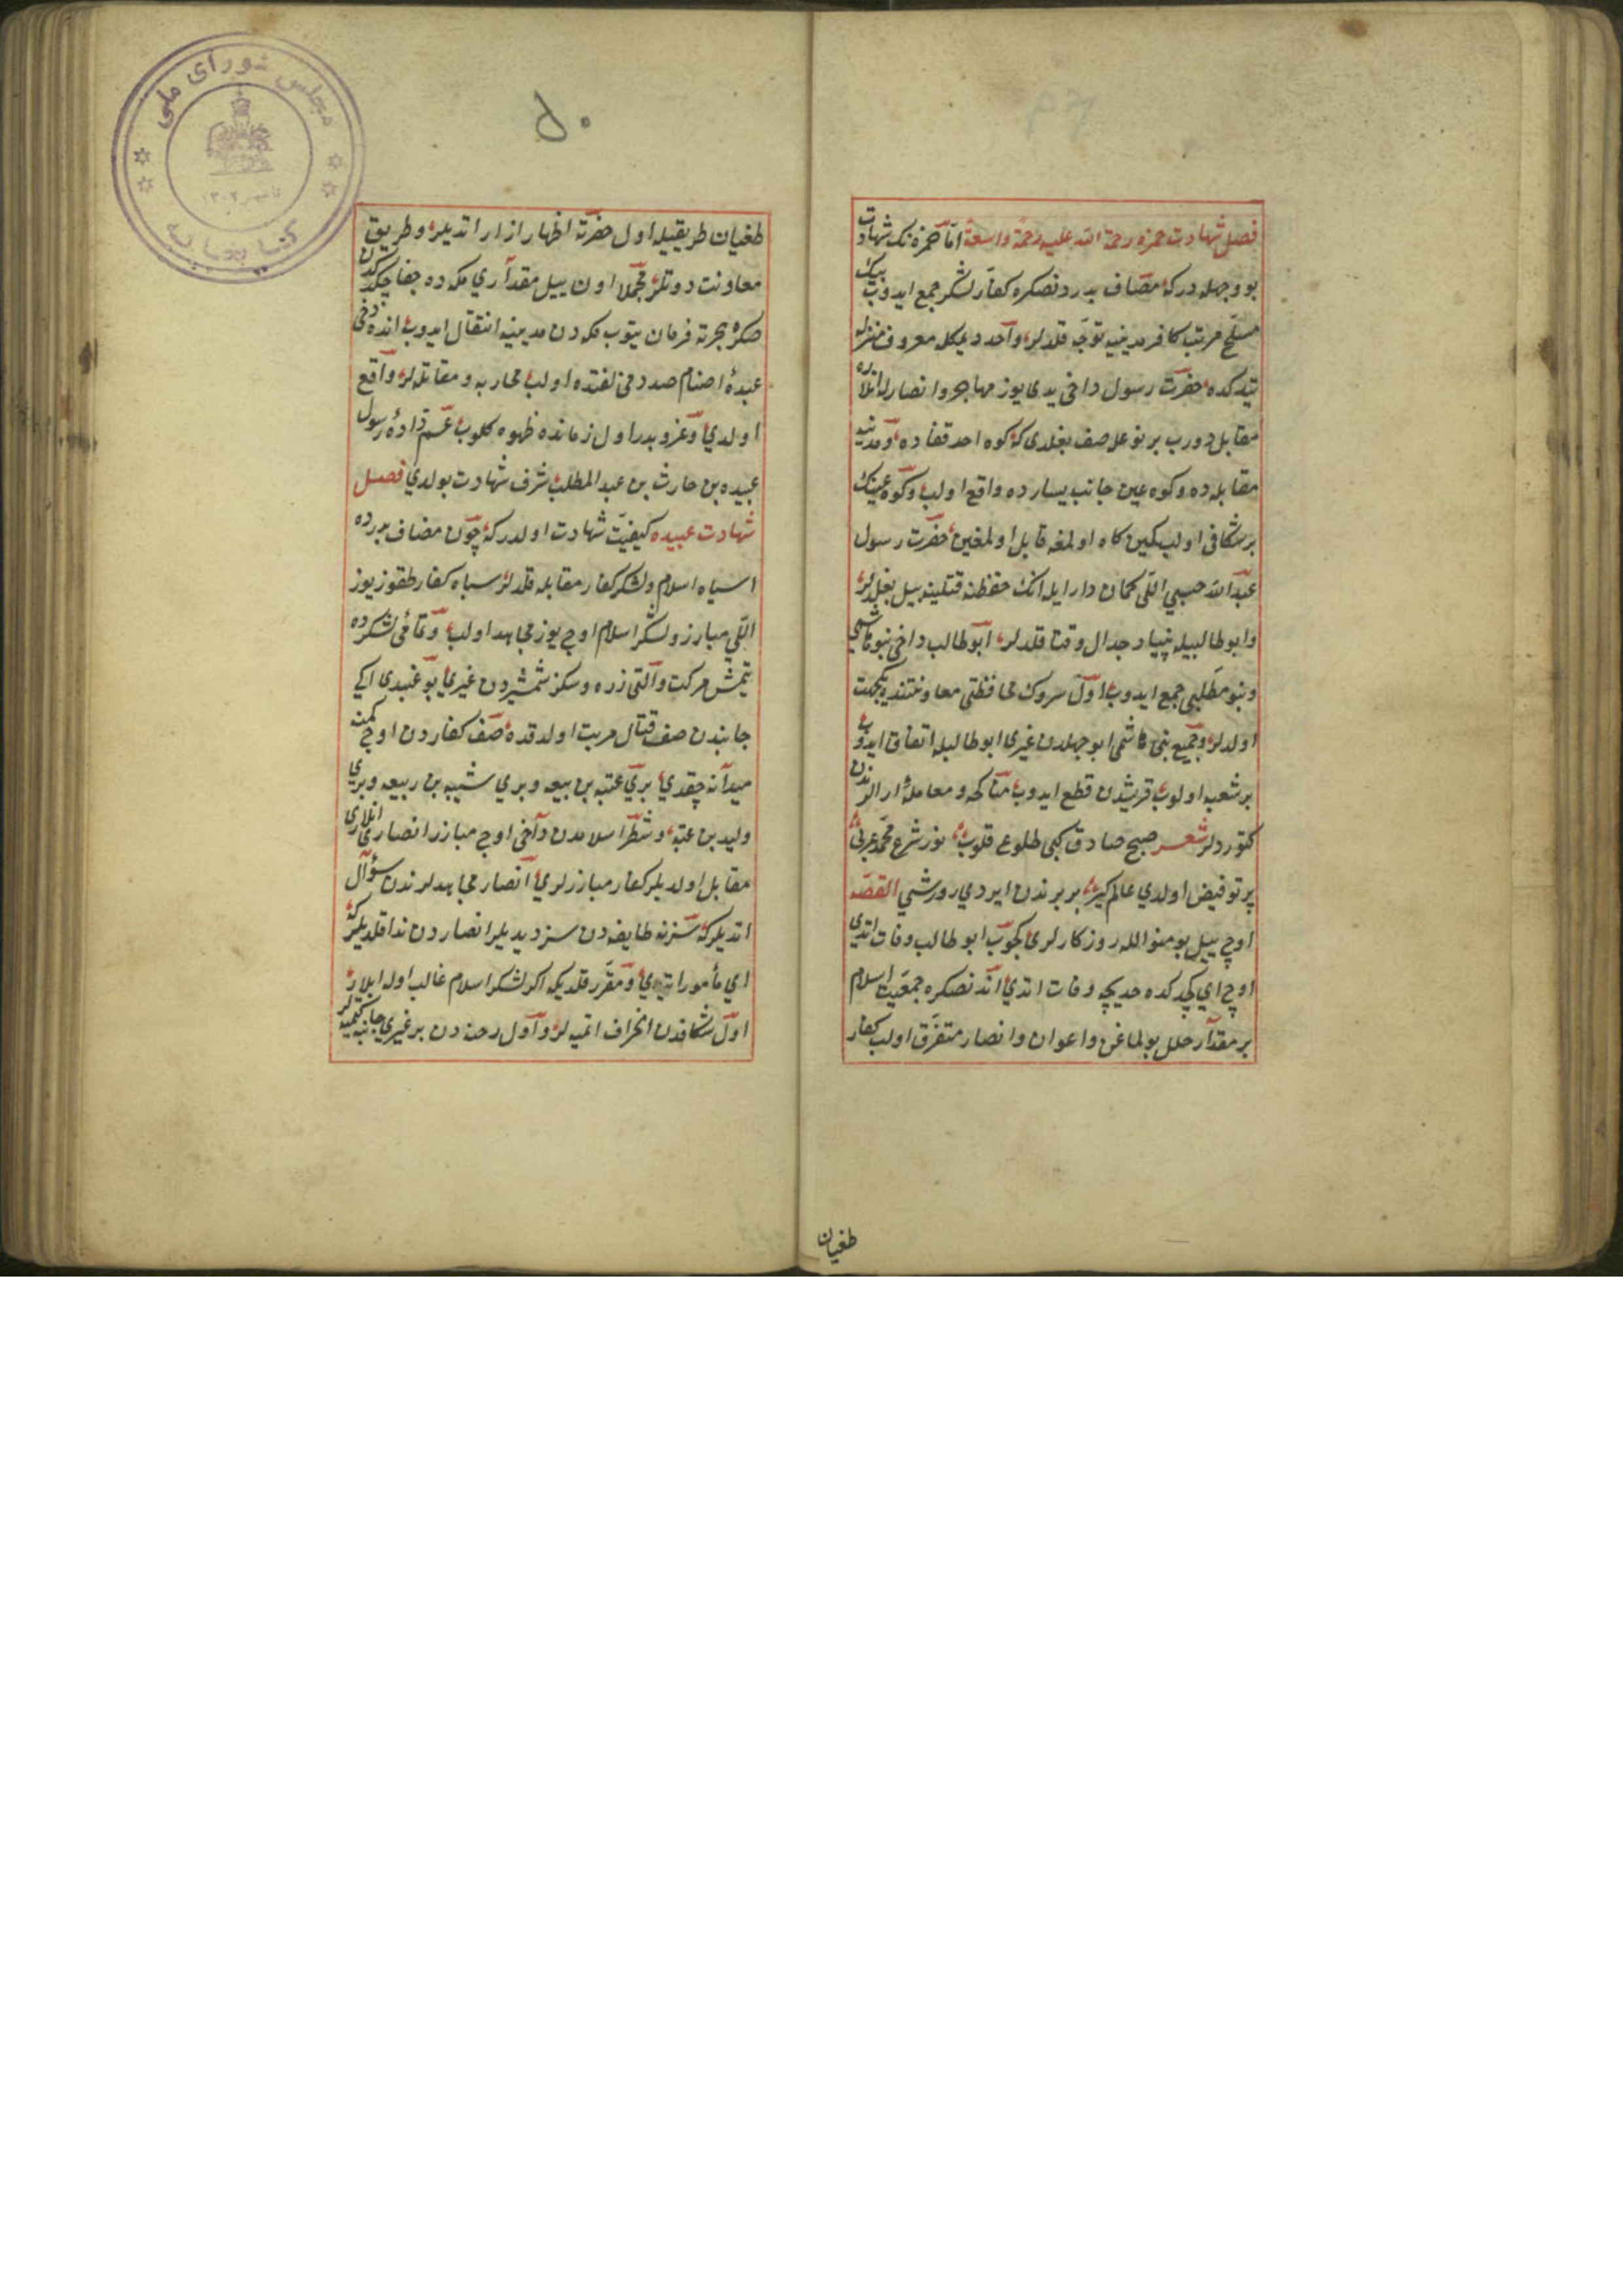 فصل شهادت حمزه رحمة الله عليه رحمة واسعة امّا حمزه نك شهادت
بو وجهله دركه مصاف بدردنصكره كفار لشكر جمع ايدوب بيك
مسلح مرتب كافر مدينيه توجّه قلدلر واحد ديمكله معروف منزله
يتدكده حضرت رسول داخى يدى يوز مهاجر وانصارله انلاره
مقابل دورب بر نوعله صف بغلدى كه كوه احد قفاده ومدينه
مقابله ده وكوه عين جانب يسارده واقع اولب وكوه عينك
بر شكافى اولب كمين كاه اولمغه قابل اولمغين حضرت رسول
عبد الله اللّى كماندار ايله انك حفظنه بيل بغلدلر
وابوطالبيله بنياد جدال قلدلر ابوطالب داخى بنو هاشمى
وبنو مطّلبى جمع ايدوب اول سروك محافظتى معاونتنده يكجهت
اولدلر وجميع بنى هاشمى ابوجهلدن غيرى ابوطالبله اتفاق ايدوب
بر شعبه اولوب قريشدن قطع ايدوب مناكحه ومعامله ارالرندن
كتوردلر شعر صبح صادق كبى طلوع قلوب نور شرع محمّد عربى
پرتو فيض اولدي عالمكير بر برندن ايردي القصّه
اوچ ييل بو منوالله روزكارلرى كچوب ابوطالب وفات اتدى
اوچ اي كچدكده خديجه وفات اتدي اندنصكره جمعيت اسلام
بر مقدار خلل بولماغن واعوان وانصار متفرّق اولب كفار
طغيان
۵۰
طغيان طريقيله اول حضرته اظهار ازار اتديلر وطريق
معاونت دوتلر مجملا اون ييل مقدآري مكه ده جفا چكدكدن
صكره هجرته فرمان يتوب مكه دن مدينيه انتقال ايدوب انده دخى
عبدهٔ اصنام صدد مخالفتده اولب محاربه ومقاتله لر واقع
اولدي وغزو بدر اول زمانده ظهوه كلوب عمّ زادهٔ رسول
عبيده بن حارث بن عبد المطلب شرف شهادت بولدي فصل
شهادت عبيده كيفيّت شهادت اولدركه چون مصاف بدرده
سپاه اسلام ولشكر كفار مقابله قلدلر سپاه كفار طقوز يوز
اللّي مبارز ولشكر اسلام اوچ يوز مجاهد اولب وتمامى لشكرده
يتمش مركب والتى زره وسكز شمشيردن غيرى يوغيدى ايكى
جانبدن صف قتال مرتب اولدقده صف كفاردن اوچ كمسه
ميدانه چقدي بري عتبه بن بيعه وبري شيبه بن ربيعه وبري
وليد بن عتبه ولشكر اسلامدن داخى اوچ مبارز انصارى انلارى
مقابل اولديلر كفار مبارزلري انصار مجاهدلرندن سؤال
اتديلركه سز نه طايفه دن سز ديديلر انصاردن ندا قلديلركه
ومقرّر قلديكه اكر لشكر اسلام غالب اوله ايلار
اول شكافدن انحراف اتميه لر واول رخنه دن بر غيري جانبه كتميه لر
مجلس شورای ملی
كتابخانه
تأسيس ۱۳۰۲